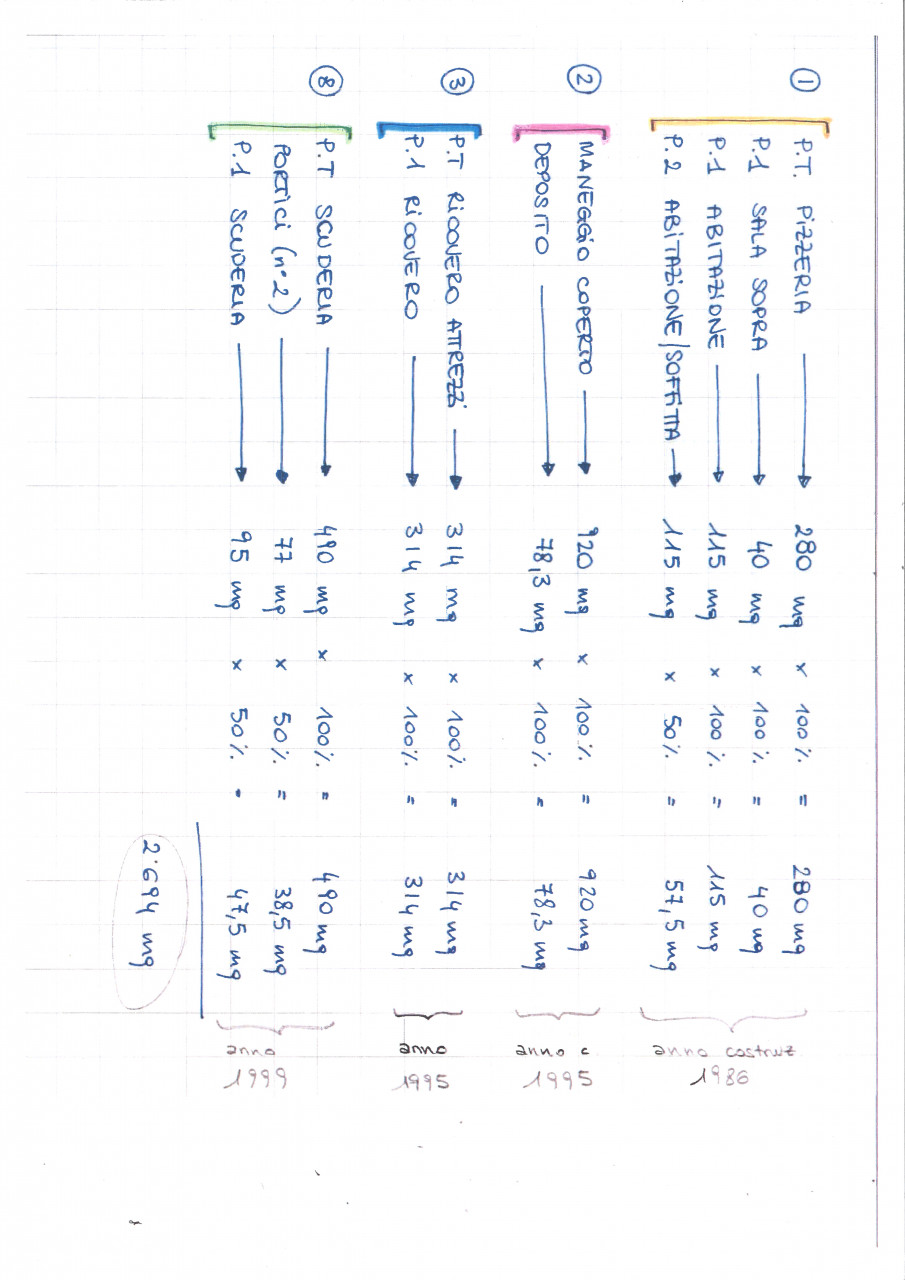 ① P.T. PIZZERIA → 280 mq x 100% = 280 mq
P.1 SALA SOPRA → 40 mq x 100% = 40 mq
P.1 ABITAZIONE → 115 mq x 100% = 115 mq
P.2 ABITAZIONE/SOFFITTA → 115 mq x 50% = 57,5 mq
anno costruz
1986
② MANEGGIO COPERTO → 920 mq x 100% = 920 mq
DEPOSITO → 78,3 mq x 100% = 78,3 mq
anno c.
1995
③ P.T RICOVERO ATTREZZI → 314 mq x 100% = 314 mq
P.1 RICOVERO → 314 mq x 100% = 314 mq
anno
1995
⑧ P.T SCUDERIA → 490 mq x 100% = 490 mq
PORTICI (n°2) → 77 mq x 50% = 38,5 mq
P.1 SCUDERIA → 95 mq x 50% = 47,5 mq
anno
1999
2'694 mq